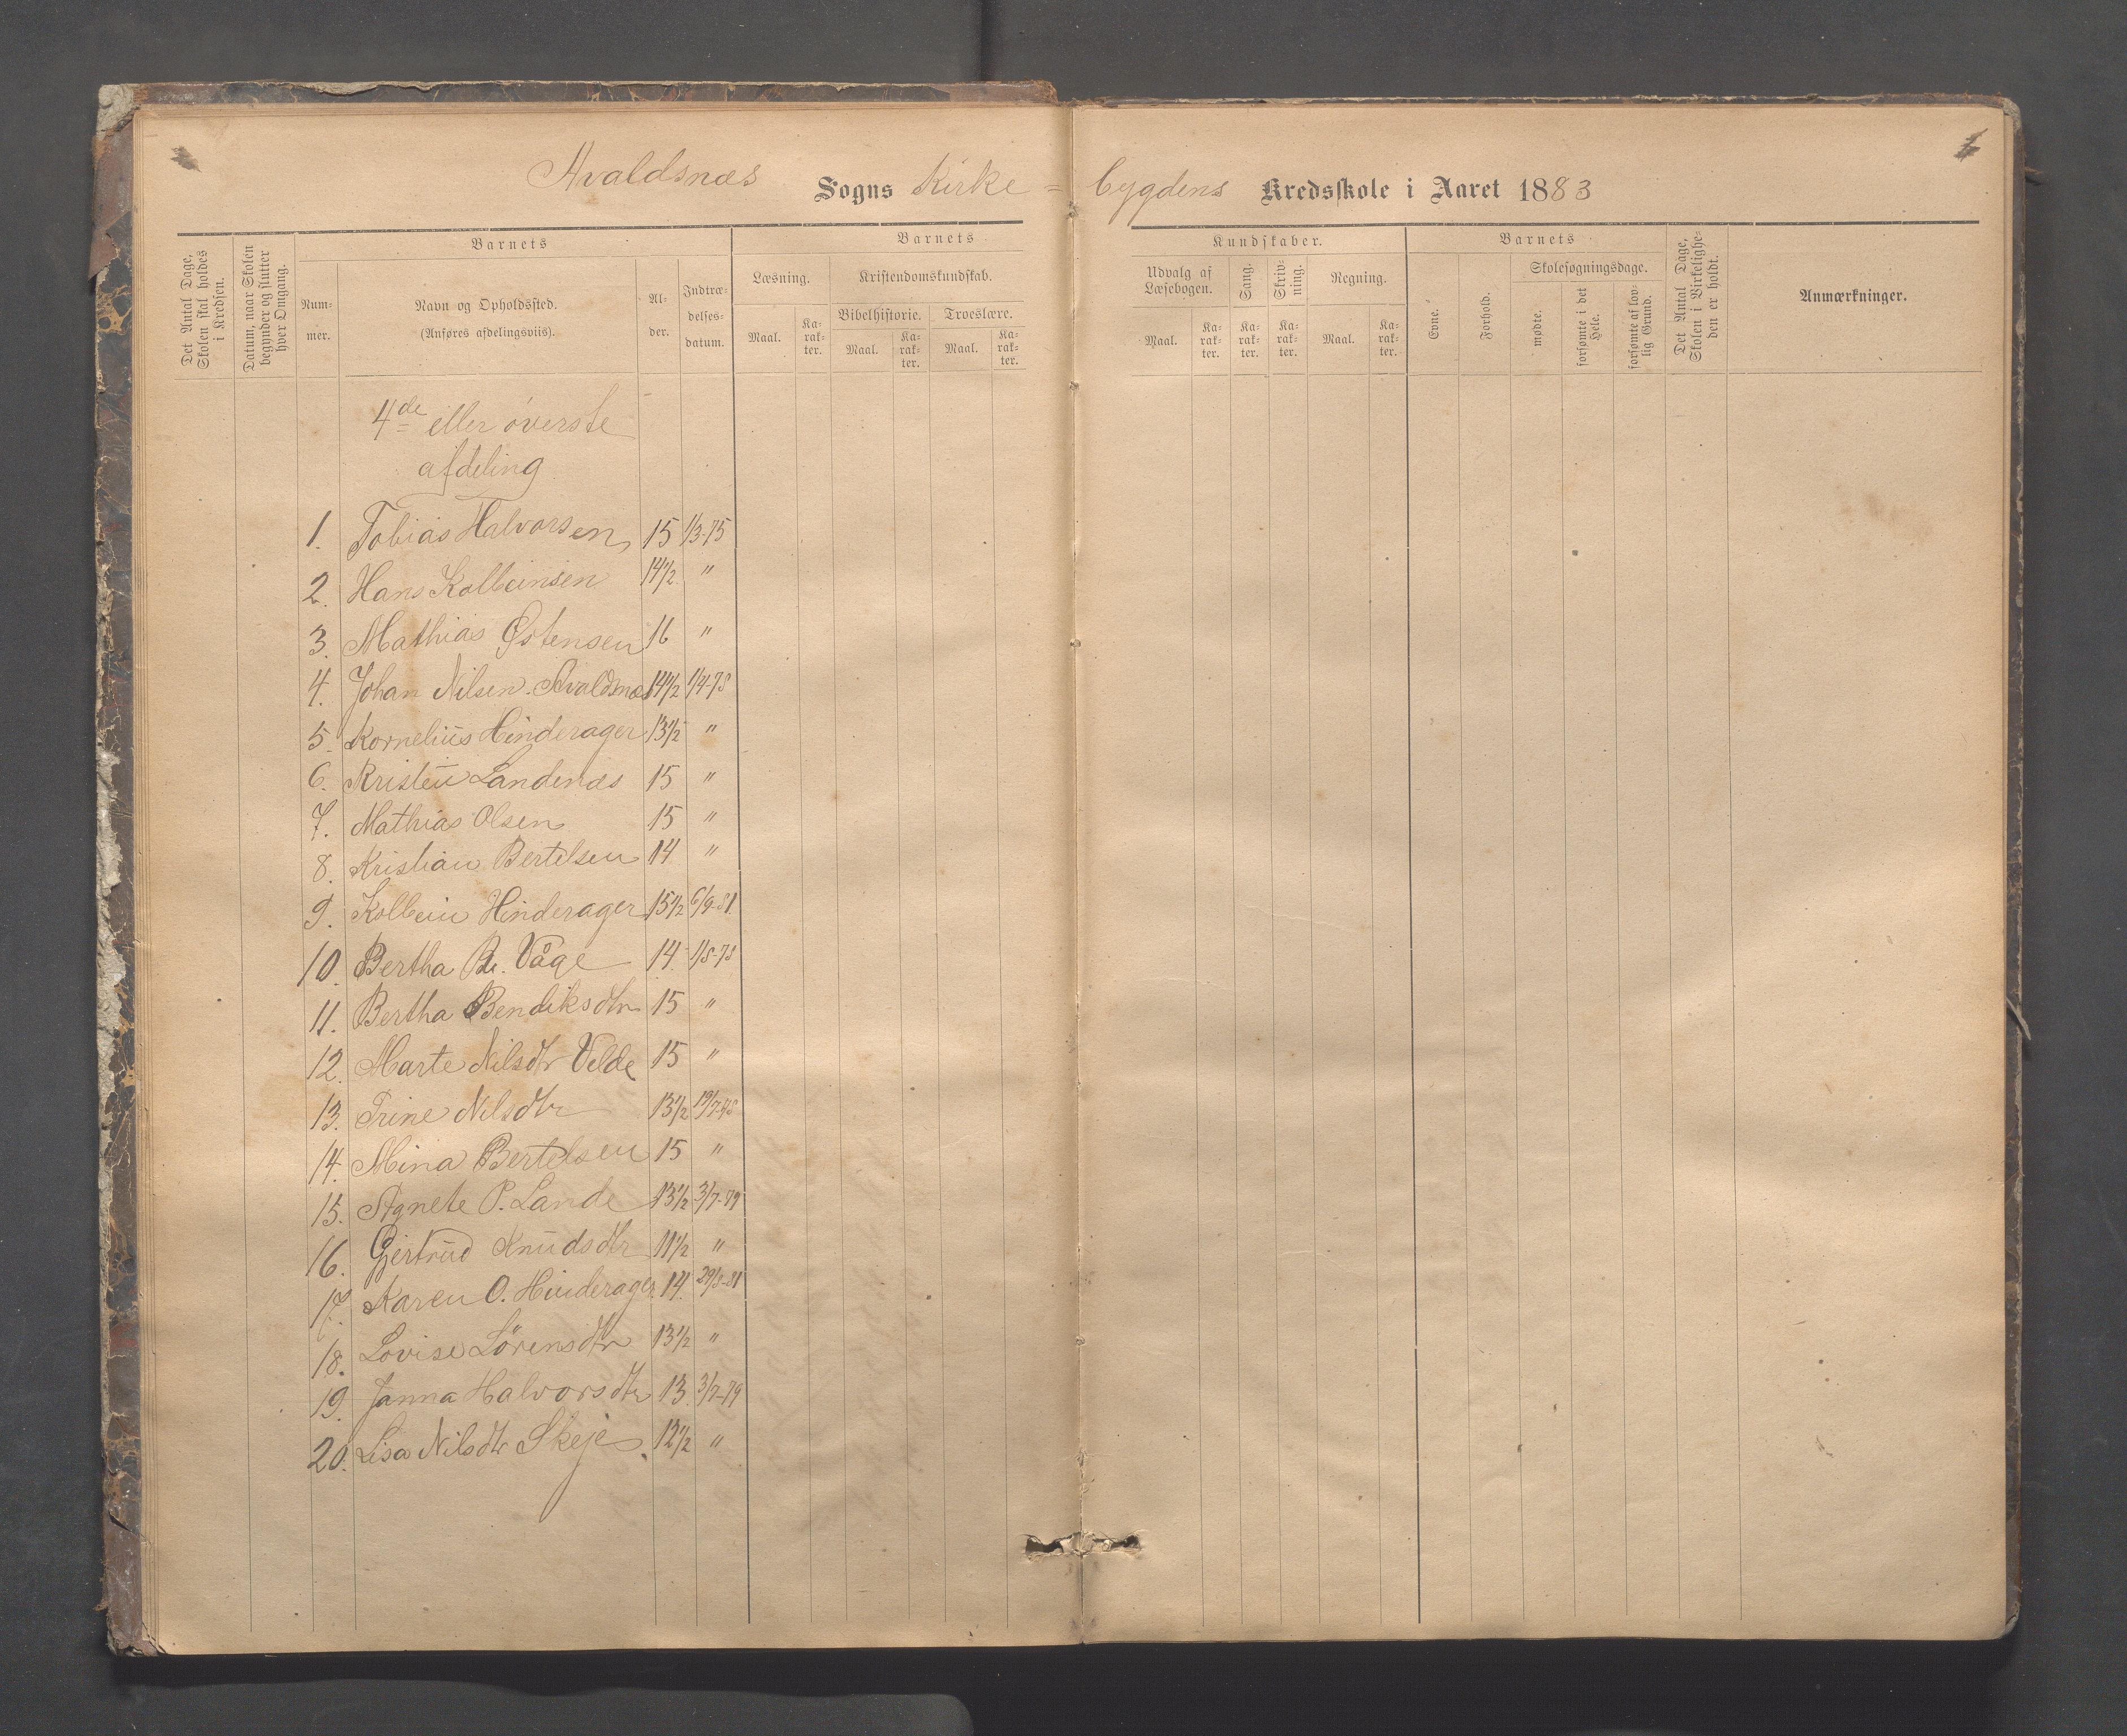 Avaldsnæs Sogns Kirke= bygdens Kredsskole i Aaret 1883
Det Antal Dage, Skolen skal holdes i Kredsen.
Datum, naar Skolen begynder og slutter hver Omgang.
Barnets
Num-
mer.
Navn og Opholdssted.
(Anføres afdelingsviis).
Al-
der.
Indtræ-
delses-
datum.
Barnets
Læsning.
Maal.
Ka-
rak-
ter.
Kristendomskundskab.
Bibelhistorie.
Maal.
Ka-
rak-
ter.
Troeslære.
Maal.
Ka-
rak-
ter.
Kundskaber.
Udvalg af
Læsebogen.
Maal.
Ka-
rak-
ter.
Sang.
Ka-
rak-
ter.
Skriv-
ning.
Ka-
rak-
ter.
Regning.
Maal.
Ka-
rak-
ter.
Barnets
Evne.
Forhold.
Skolesøgningsdage.
mødte.
forsømte i det
Hele.
forsømte af lov-
lig Grund.
Det Antal Dage,
Skolen i Virkelighe-
den er holdt.
Anmærkninger.
4de eller øverste
afdeling
1. Tobias Halvorsen 15 1/3-75
2. Hans Kolbeinsen 14 1/2 "
3. Mathias Østensen 16 "
4. Johan Nilsen. Avaldsnæs 14 1/2 1/4-78
5. Kornelius Hinderager 13 1/2 "
6. Kristen Landenæs 15 "
7. Mathias Olsen 15 "
8. Kristian Bertelsen 14 "
9. Kolbein Hinderager 15 1/2 6/9-81
10. Bertha B. Våge 14 1/8-78
11. Bertha Bendiksdtr 15 "
12. Marte Nilsdtr Velde 15 "
13. Trine Nilsdtr 13 1/2
14. Mina Bertelsen 15 "
15. Agnete P. Lande 13 1/2 3/7-79
16. Gjertrud Knudsdtr 11 1/2 "
17. Karen O. Hinderager 14 29/8-81
18. Lovise Sörensdtr 13 1/2 "
19. Janna Halvorsdtr 13 3/7-79
20. Lisa Nilsdtr Skeje. 12 1/2 "